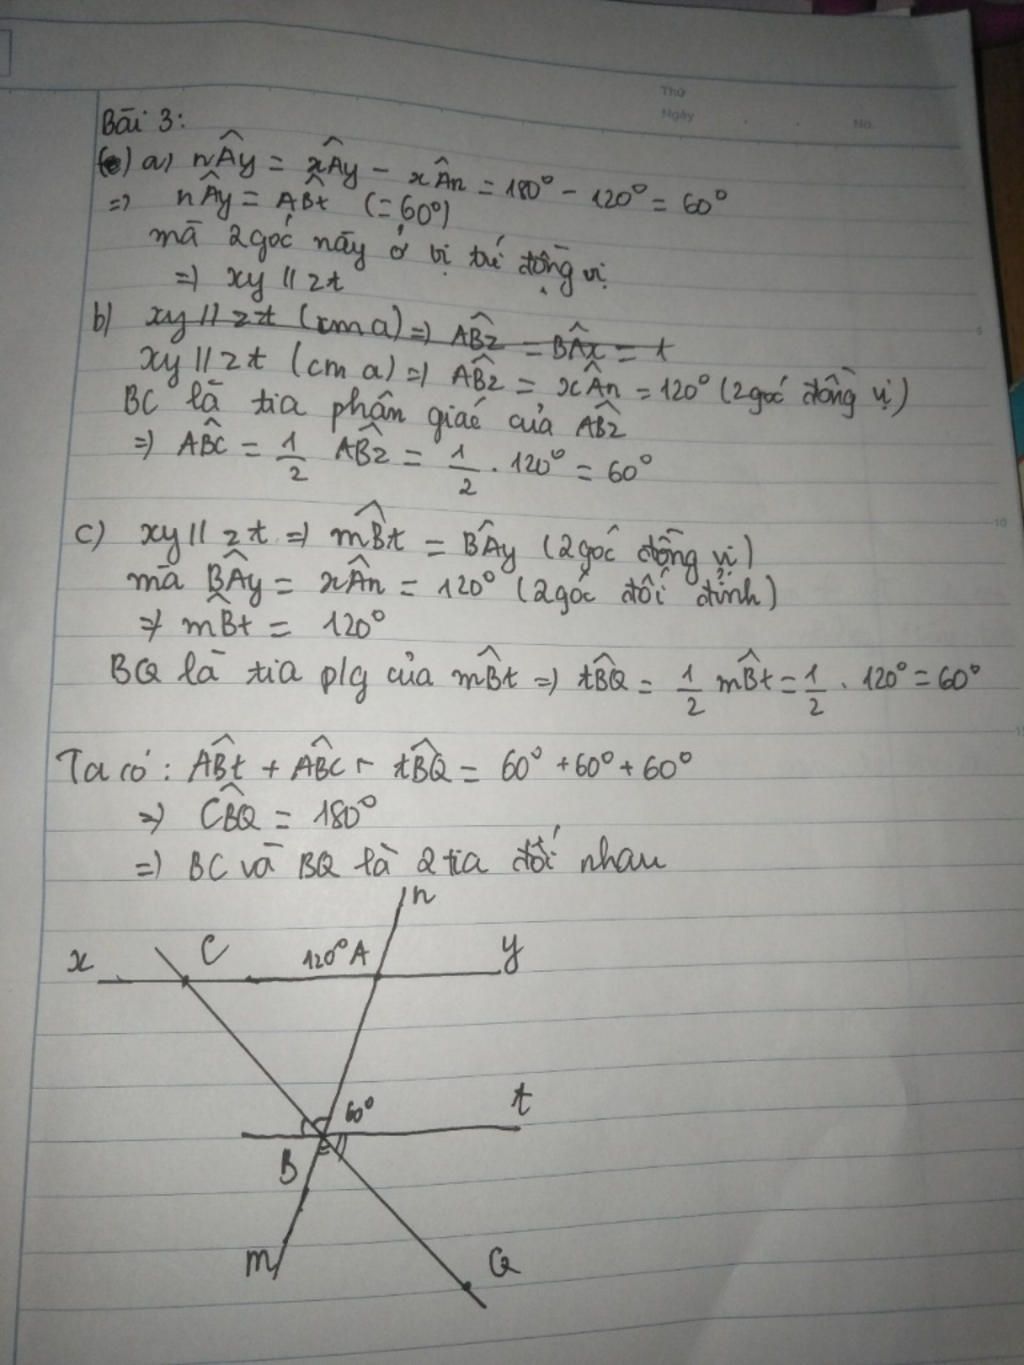 Thứ
Ngày
No.
Bài 3:
a) nÂy = xÂy - xÂn = 180° - 120° = 60°
=> nÂy = AB̂t (= 60°)
mà 2 góc này ở vị trí đồng vị
=> xy // zt
b) xy // zt (cm a) => AB̂z = BÂx = t
xy // zt (cm a) => AB̂z = xÂn = 120° (2 góc đồng vị)
BC là tia phân giác của AB̂z
=> AB̂C = 1/2 AB̂z = 1/2 . 120° = 60°
c) xy // zt => mB̂t = BÂy (2 góc đồng vị)
mà BÂy = xÂn = 120° (2 góc đối đỉnh)
=> mB̂t = 120°
BQ là tia p/g của mB̂t => tB̂Q = 1/2 mB̂t = 1/2 . 120° = 60°
Ta có: AB̂t + AB̂C + tB̂Q = 60° + 60° + 60°
=> CB̂Q = 180°
=> BC và BQ là 2 tia đối nhau
n
x C 120° A y
60° t
B
m Q
5
10